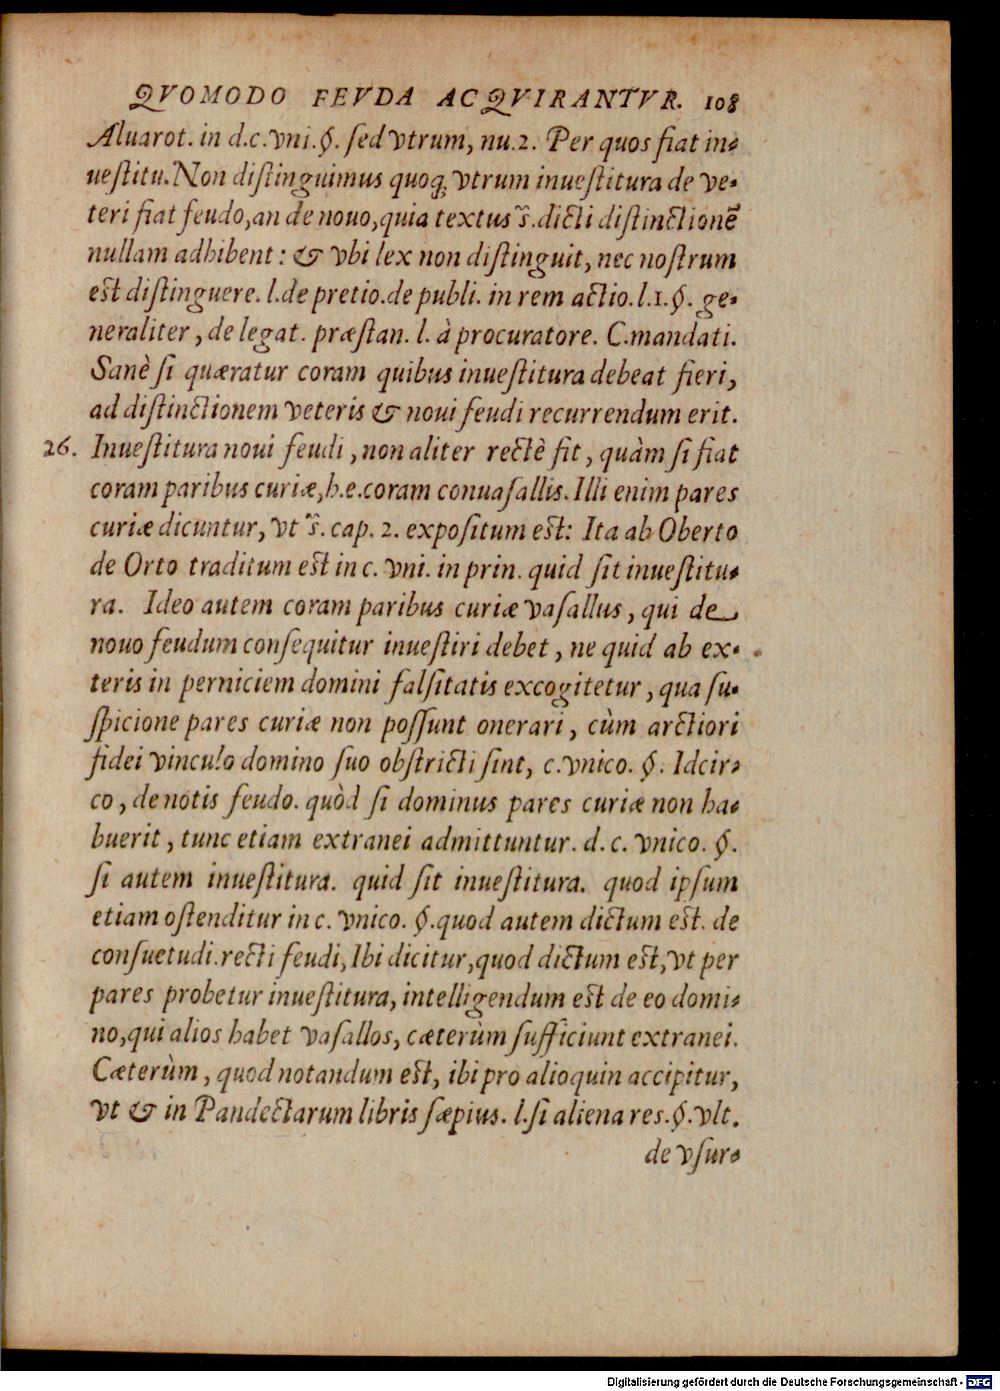 QVOMODO FEVDA ACQVIRANTVR. 108
Aluarot. in d.c.vni.§. ſed vtrum, nu.2. Per quos fiat in-
ueſtitu. Non diſtinguimus quoq; vtrum inueſtitura de ve-
teri fiat feudo, an de nouo, quia textus s̃. dicti diſtinctionẽ
nullam adhibent: & vbi lex non diſtinguit, nec noſtrum
eſt diſtinguere. l.de pretio.de publi. in rem actio.l.1.§. ge-
neraliter, de legat. præſtan. l. à procuratore. C.mandati.
Sanè ſi quæratur coram quibus inueſtitura debeat fieri,
ad diſtinctionem veteris & noui feudi recurrendum erit.
26. Inueſtitura noui feudi, non aliter rectè fit, quàm ſi fiat
coram paribus curiæ, h.e.coram conuaſallis. Illi enim pares
curiæ dicuntur, vt s̃. cap. 2. expoſitum eſt: Ita ab Oberto
de Orto traditum eſt in c. vni. in prin. quid ſit inueſtitu-
ra. Ideo autem coram paribus curiæ vaſallus, qui de
nouo feudum conſequitur inueſtiri debet, ne quid ab ex-
teris in perniciem domini falſitatis excogitetur, qua ſu-
ſpicione pares curiæ non poſſunt onerari, cùm arctiori
fidei vinculo domino ſuo obſtricti ſint, c.vnico. §. Idcir-
co, de notis feudo. quòd ſi dominus pares curiæ non ha-
buerit, tunc etiam extranei admittuntur. d. c. vnico. §.
ſi autem inueſtitura. quid ſit inueſtitura. quod ipſum
etiam oſtenditur in c. vnico. §.quod autem dictum eſt. de
conſuetudi.recti feudi, Ibi dicitur, quod dictum eſt, vt per
pares probetur inueſtitura, intelligendum eſt de eo domi-
no, qui alios habet vaſallos, cæterùm ſufficiunt extranei.
Cæterùm, quod notandum eſt, ibi pro alioquin accipitur,
vt & in Pandectarum libris ſæpius. l.ſi aliena res.§.vlt.
de vſur-
Digitalisierung gefördert durch die Deutsche Forschungsgemeinschaft - DFG